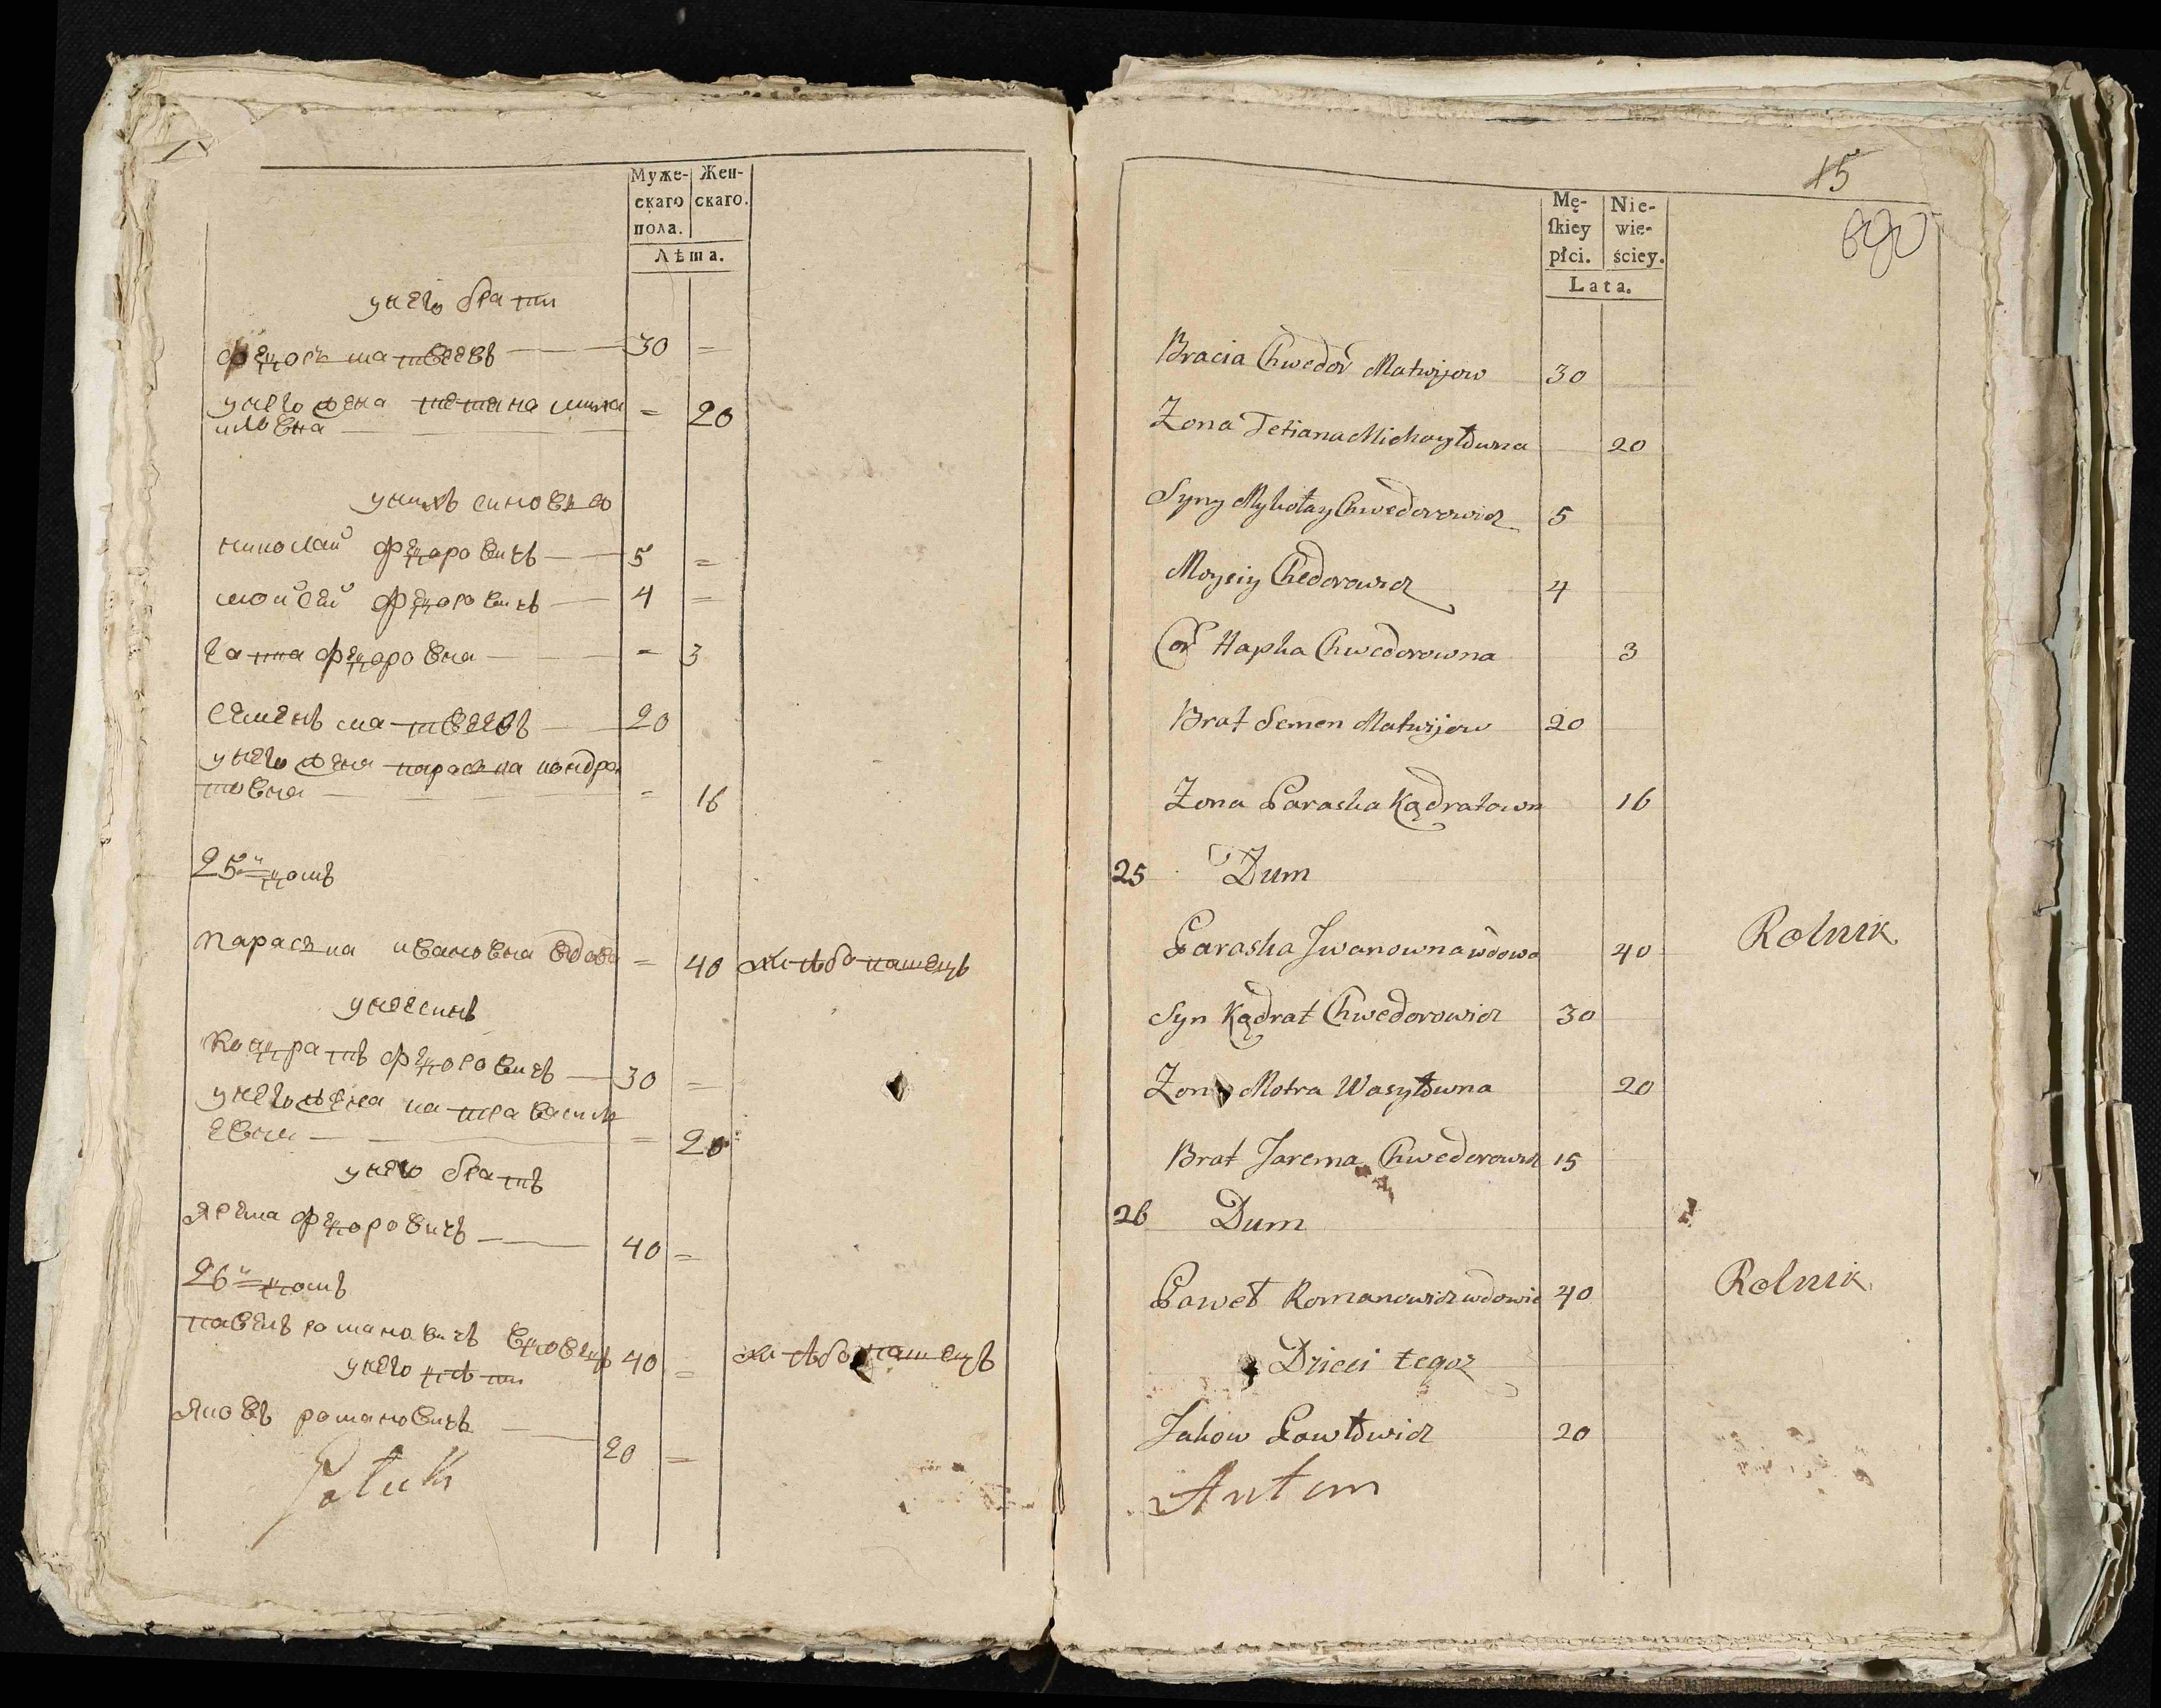 Муже-
скаго
пола.
Жен-
скаго.
Лѣта.
унего брати
федосъ матвеевъ 30 =
унего жена тетяна миха
иловна = 20
унихъ синовья
николай федоровичъ 5 =
мойсей федоровичъ 4 =
гапка федоровна = 3
семенъ матвеевъ 20
унего жена параска кондра
товна = 16
25й домъ
Параска ивановна вдова = 40 хлѣбопашецъ
унее синъ
Кондратъ федоровичъ 30 =
унего жена матра василь
евна = 20
унего братъ
Ярема федоровичъ 40 =
26й домъ
павелъ романовичъ вдовецъ 40 = хлѣбопашецъ
унего дѣти
Яковъ романовичъ 20 =
15
690
Mę-
ſkiey
płci.
Nie-
wie-
ściey.
Lata.
Bracia Chwedor Matwijow 30
Zona Tetiana Michayłówna 20
Syny Mykołay Chwedorowicz 5
Moysiy Chedorowicz 4
Cor Hapka Chwedorowna 3
Brat Semen Matwijow 20
Zona Paraska Kądratown 16
25 Dum
Paraska Jwanowna wdowa 40 Rolnik
Syn Kądrat Chwedorowicz 30
Zona Motra Wasyłówna 20
Brat Jarema Chwedorowicz 15
26 Dum
Paweł Romanowicz wdowie 40 Rolnik
Dzieci tegoż
Jakow Pawłowicz 20
Antem